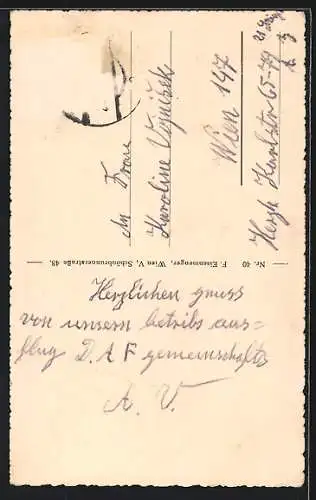 An Frau
Karoline Vojnišek
Wien 147
Herzh Karlstr 65-79
Nr. 40 F. Eisenmenger, Wien V, Schönbrunnerstraße 48.
Herzlichen gruss
von unsern betribs aus=
flug D.A.F gemeinschafts
A. V.